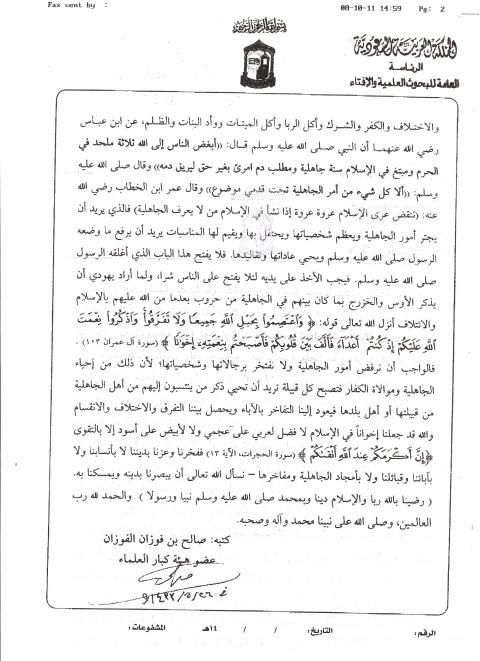 Fax sent by :
08-10-11 14:59 Pg: 2
بسم الله الرحمن الرحيم
المملكة العربية السعودية
الرئاسة
العامة للبحوث العلمية والإفتاء
والاختلاف والكفر والشرك وأكل الربا وأكل الميتات ووأد البنات والظلم، عن ابن عباس
رضي الله عنهما أن النبي صلى الله عليه وسلم قال: ((أبغض الناس إلى الله ثلاثة ملحد في
الحرم ومبتغ في الإسلام سنة جاهلية ومطلب دم امرئ بغير حق ليريق دمه)) وقال صلى الله عليه
وسلم: ((ألا كل شيء من أمر الجاهلية تحت قدمي موضوع)) وقال عمر ابن الخطاب رضي الله
عنه: (تنقض عرى الإسلام عروة عروة إذا نشأ في الإسلام من لا يعرف الجاهلية) فالذي يريد أن
يجتر أمور الجاهلية ويعظم شخصياتها ويحتفل بها ويقيم لها المناسبات يريد أن يرفع ما وضعه
الرسول صلى الله عليه وسلم ويحيي عاداتها وتقاليدها. فلا يفتح هذا الباب الذي أغلقه الرسول
صلى الله عليه وسلم. فيجب الأخذ على يديه لئلا يفتح على الناس شرا، ولما أراد يهودي أن
يذكر الأوس والخزرج بما كان بينهم في الجاهلية من حروب بعدما من الله عليهم بالإسلام
والائتلاف أنزل الله تعالى قوله: ﴿ وَاعْتَصِمُوا بِحَبْلِ اللَّهِ جَمِيعًا وَلَا تَفَرَّقُوا وَاذْكُرُوا نِعْمَتَ
اللَّهِ عَلَيْكُمْ إِذْ كُنتُمْ أَعْدَاءً فَأَلَّفَ بَيْنَ قُلُوبِكُمْ فَأَصْبَحْتُم بِنِعْمَتِهِ إِخْوَانًا ﴾ (سورة آل عمران ١٠٣).
فالواجب أن نرفض أمور الجاهلية ولا نفتخر برجالاتها وشخصياتها؛ لأن ذلك من إحياء
الجاهلية وموالاة الكفار فتصبح كل قبيلة تريد أن تحيي ذكر من ينتسبون إليهم من أهل الجاهلية
من قبيلتها أو أهل بلدها فيعود إلينا التفاخر بالآباء ويحصل بيننا التفرق والاختلاف والانقسام
والله قد جعلنا إخواناً في الإسلام لا فضل لعربي على عجمي ولا لأبيض على أسود إلا بالتقوى
﴿ إِنَّ أَكْرَمَكُمْ عِندَ اللَّهِ أَتْقَاكُمْ ﴾ (سورة الحجرات، الآية ١٣) ففخرنا وعزنا بديننا لا بأنسابنا ولا
بآبائنا وقبائلنا ولا بأمجاد الجاهلية ومفاخرها – نسأل الله تعالى أن يبصرنا بدينه ويمسكنا به.
( رضينا بالله ربا والإسلام دينا وبمحمد صلى الله عليه وسلم نبيا ورسولا ) والحمد لله رب
العالمين، وصلى الله على نبينا محمد وآله وصحبه.
كتبه: صالح بن فوزان الفوزان
عضو هيئة كبار العلماء
الرقم: التاريخ: / / ١٤هـ المشفوعات: